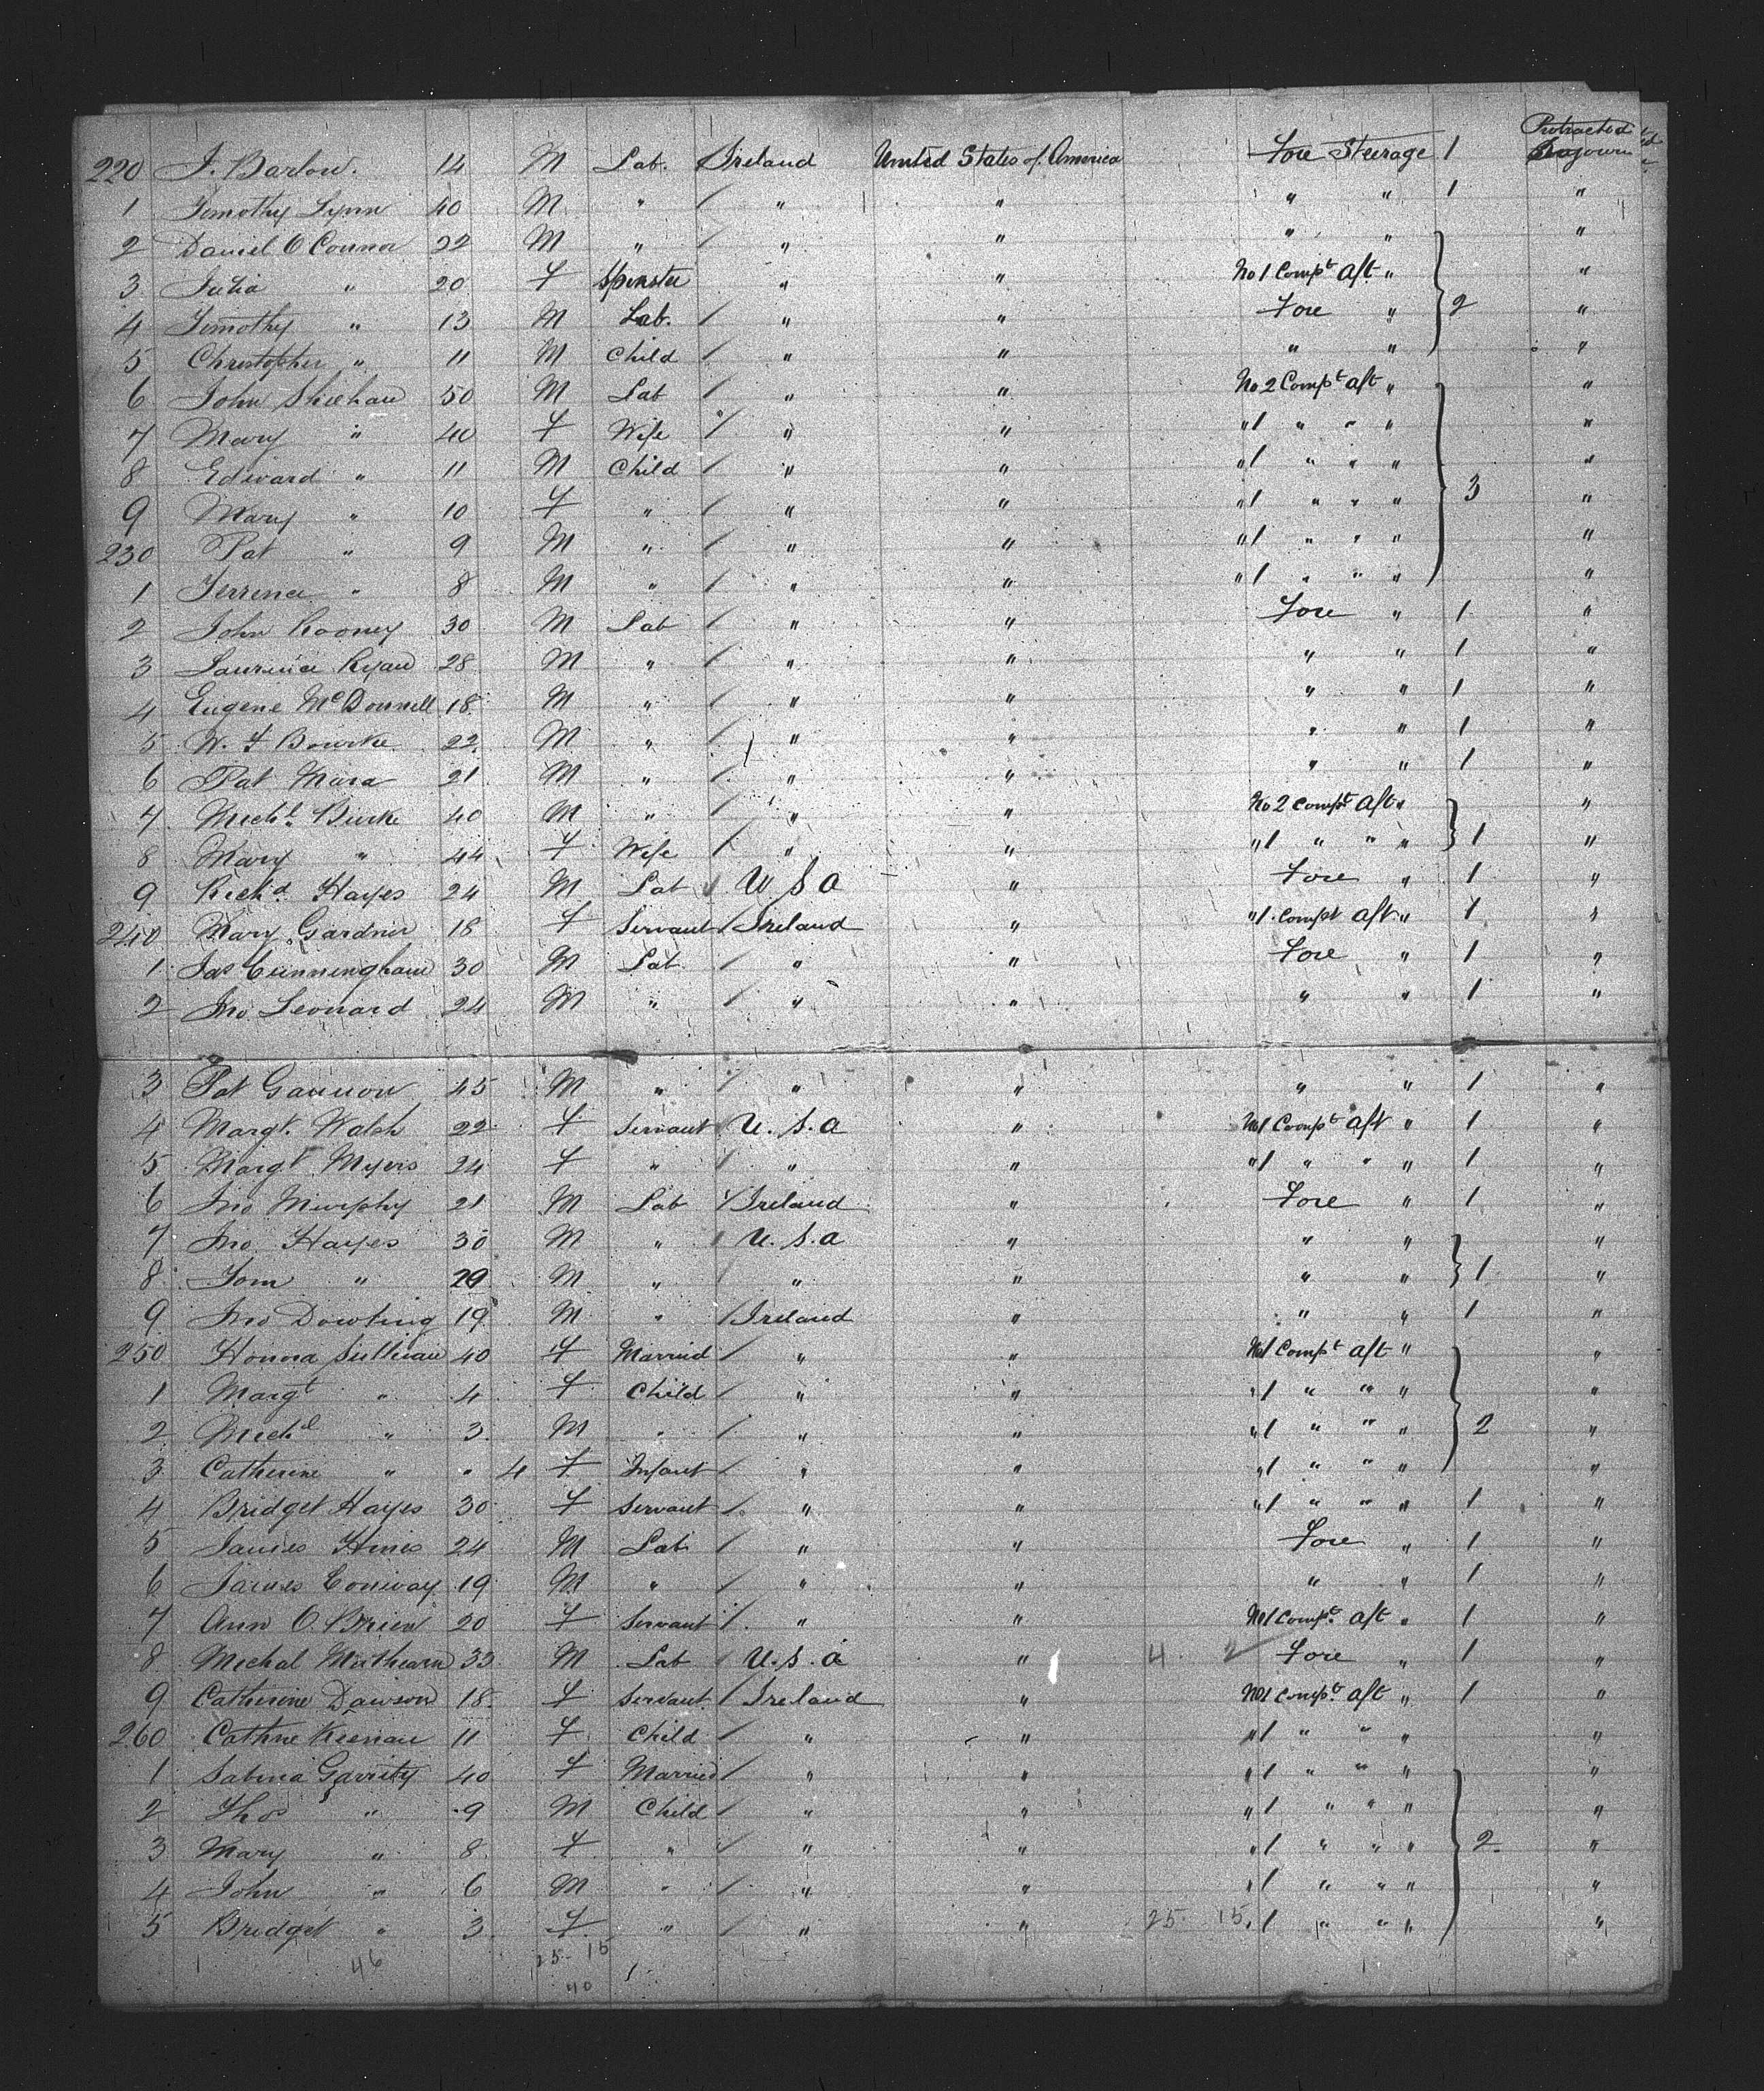 Protracted
220 J. Barlow. 14 M Lab. / Ireland United States of America Fore Steerage 1 Sojourn
1 Timothy Lynn 40 M " / " " " " 1 "
2 Daniel O Connor 22 M " / " " " " "
3 Julia " 20 F Spinster " " No 1 Compt aft " "
4 Timothy " 13 M Lab. / " " Fore " 2 "
5 Christopher " 11 M Child / " " " " "
6 John Shiehan 50 M Lab / " " No 2 Compt aft " "
7 Mary " 40 F Wife / " " " 1 " " " "
8 Edward " 11 M Child / " " " 1 " " " "
9 Mary " 10 F " / " " " 1 " " " 3 "
230 Pat " 9 M " / " " " 1 " " " "
1 Terrence " 8 M " / " " " 1 " " " "
2 John Rooney 30 M Lab / " " Fore " 1 "
3 Laurence Ryan 28 M " / " " " " 1 "
4 Eugene McDonnell 18 M " / " " " " 1 "
5 W. F Bourke 22 M " / " " " " 1 "
6 Pat Mara 21 M " / " " " " 1 "
7 Michl. Burke 40 M " / " " No 2 Compt aft " "
8 Mary " 44 F Wife / " " " 1 " " " 1 "
9 Richd. Hayes 24 M Lab / U S A " Fore " 1 "
240 Mary Gardner 18 F Servant / Ireland " " 1 Compt aft " 1 "
1 Jas Cunningham 30 M Lab / " " Fore " 1 "
2 Jno Leonard 24 M " / " " " " 1 "
3 Pat Gannon 45 M " / " " " " 1 "
4 Margt. Walsh 22 F Servant U. S. A " No 1 Compt aft " 1 "
5 Margt Myers 24 F " / " " " 1 " " " 1 "
6 Jno Murphy 21 M Lab / Ireland " Fore " 1 "
7 Jno. Hayes 30 M " / U. S. A " " " "
8 Tom " 29 M " / " " " " 1 "
9 Jno Dowling 19 M " / Ireland " " " 1 "
250 Honora Sullivan 40 F Married / " " No 1 Compt aft " "
1 Margt " 4 F Child / " " " 1 " " " "
2 Michl " 3 M " / " " " 1 " " " 2 "
3 Catherine " " 4 F Infant / " " " 1 " " " "
4 Bridget Hayes 30 F Servant / " " " 1 " " " 1 "
5 James Hines 24 M Lab / " " Fore " 1 "
6 James Conway 19 M " / " " " " 1 "
7 Ann O. Brien 20 F Servant / " " No 1 Compt. aft " 1 "
8 Michal 33 M Lab / U. S. A " 4 2 Fore " 1 "
9 Catherine Dawson 18 F Servant / Ireland " No 1 Compt. aft " 1 "
260 Cathne Keenan 11 F Child / " " " 1 " " " "
1 Sabina Gavrity 40 F Married / " " " 1 " " " "
2 Thos " 9 M Child / " " " 1 " " " "
3 Mary " 8 F " / " " " 1 " " " 2 "
4 John " 6 M " / " " " 1 " " " "
5 Bridget " 3 F " / " " 25 15 " 1 " " " "
46 25 15
40